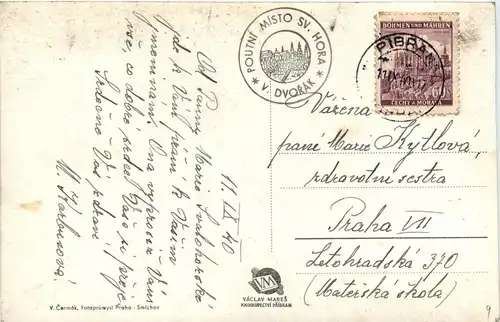 11. IX 40
Od Panny Marie Svatohorské
jak k Vám přání k Vašim
jmeninám. Ona vyprosiž Vám
vše, co dobré srdce Vaše si přeje.
Srdečně Vás zdraví
M. Karbusová.
V. Čermák, Fotoprůmysl Praha - Smíchov
POUTNÍ MÍSTO SV. HORA
* V. DVOŘÁK *
BÖHMEN UND MÄHREN
ČECHY A MORAVA
PIBRA
Vážená
paní Marie Kytlová,
zdravotní sestra
Praha VII
Letohradská 370
(Mateřská škola)
VM
VÁCLAV MAREŠ
KNIHKUPECTVÍ PŘÍBRAM
9